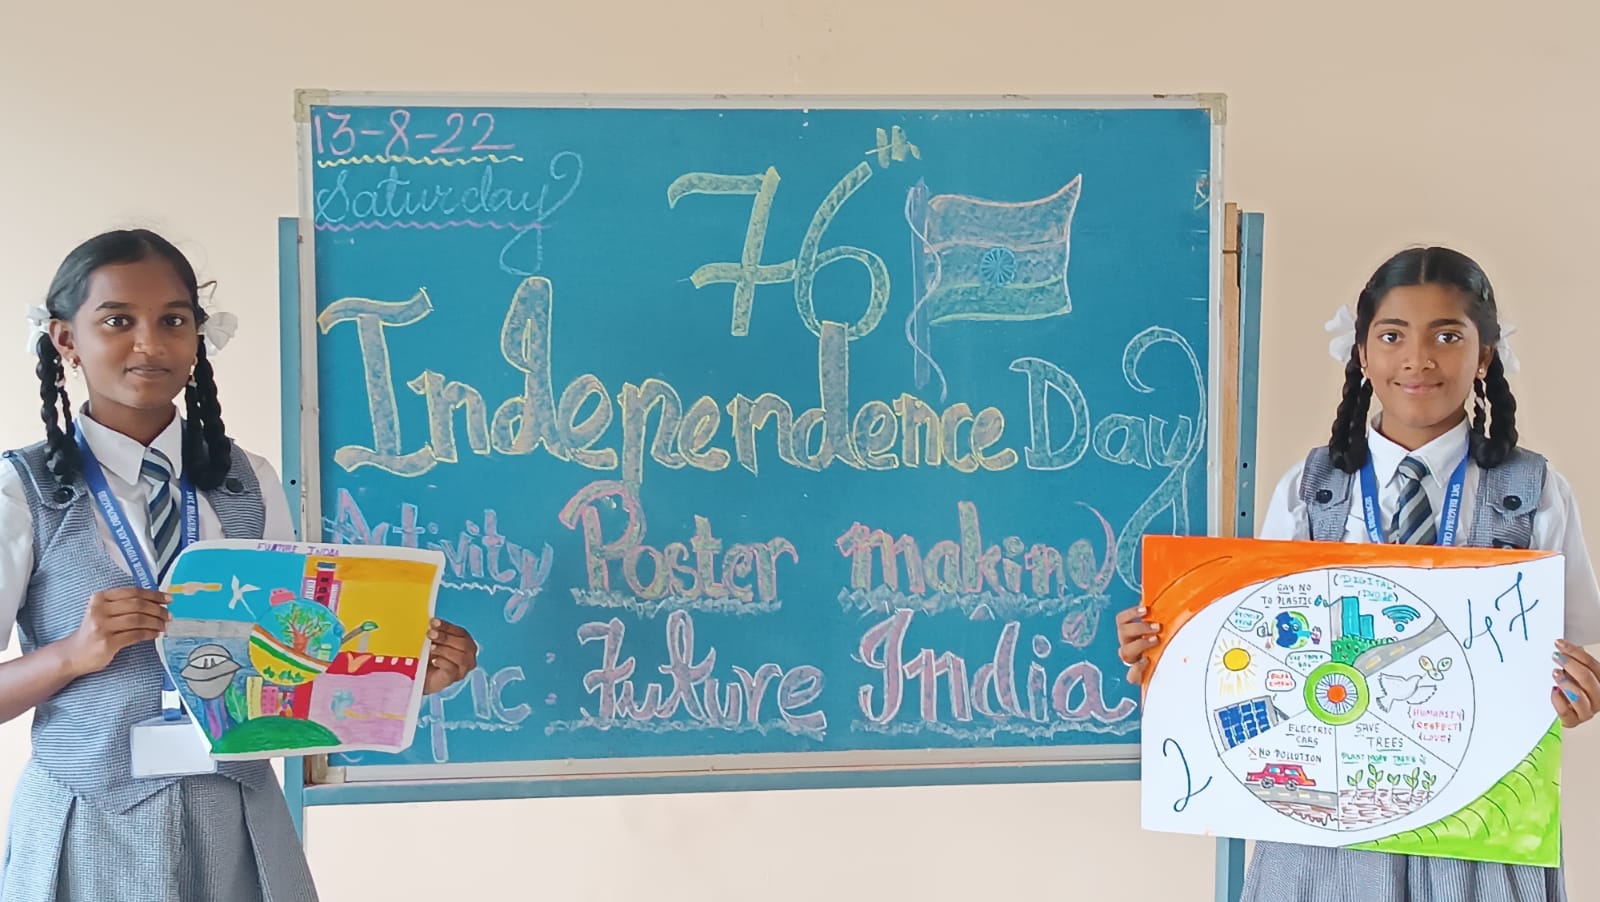 13-8-22
Saturday
76th
Independence Day
Activity Poster making
Topic: Future India
FUTURE INDIA
SAY NO
TO PLASTIC
DIGITAL
INDIA
USE PAPER
BAG
SOLAR
ENERGY
{HUMANITY}
{RESPECT}
{LOVE}
ELECTRIC
CARS
X NO POLLUTION
SAVE
TREES
PLANT MORE TREES
2
47